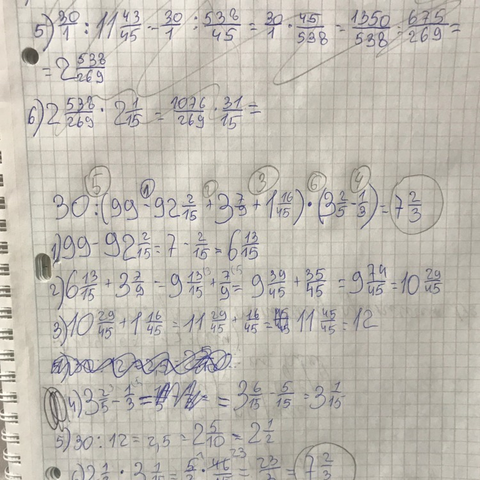 5) 30/1 : 11 43/45 = 30/1 : 538/45 = 30/1 · 45/538 = 1350/538 = 675/269 =
= 2 538/269
6) 2 538/269 · 2 1/15 = 1076/269 · 31/15 =
5 1 1 3 6 4
30 : (99 - 92 2/15 + 3 7/9 + 1 16/45) · (3 2/5 - 1/9) = 7 2/3
1) 99 - 92 2/15 = 7 - 2/15 = 6 13/15
2) 6 13/15 + 3 7/9 = 9 13/15 + 7/9 = 9 39/45 + 35/45 = 9 74/45 = 10 29/45
3) 10 29/45 + 1 16/45 = 11 29/45 + 16/45 = 11 45/45 = 12
4) 3 2/5 - 1/3 = 3 6/15 - 5/15 = 3 1/15
5) 30 : 12 = 2,5 = 2 5/10 = 2 1/2
6) 2 1/2 · 3 1/15 = 5/2 · 46/15 = 23/3 = 7 2/3